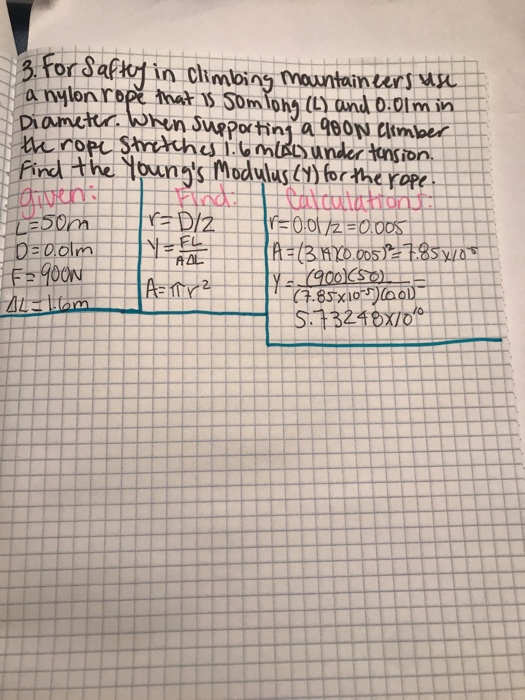 3. For Safty in climbing mountaineers use
a nylon rope that is 50m long (L) and 0.01m in
Diameter. When supporting a 900N climber
the rope stretches 1.6m(ΔL) under tension.
Find the Young's Modulus (Y) for the rope.
given:
L=50m
D=0.01m
F=900N
ΔL=1.6m
Find:
r=D/2
Y=FL/AΔL
A=πr²
Calculations:
r=0.01/2=0.005
A=(3.14)(0.005)²=7.85x10⁻⁵
Y=(900)(50)/(7.85x10⁻⁵)(0.01)=
5.73248x10¹⁰